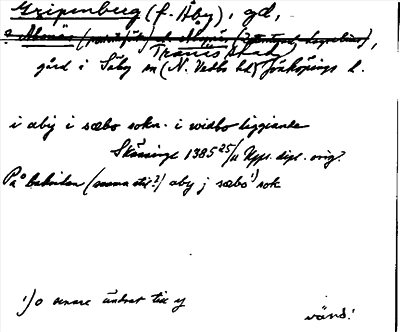 Gripenberg (f. Åby), gd,
Tranås stad,
gård i Säby sn (N. Vedbo hd) Jönköpings l.
i aby i sæbo sokn i widbo liggiande
Skänninge 1385 25/11 Uppl. dipl. orig.
På baksidan (samma stil?) aby j sæbo 1) sok
1) o senare ändrat till y
vänd!